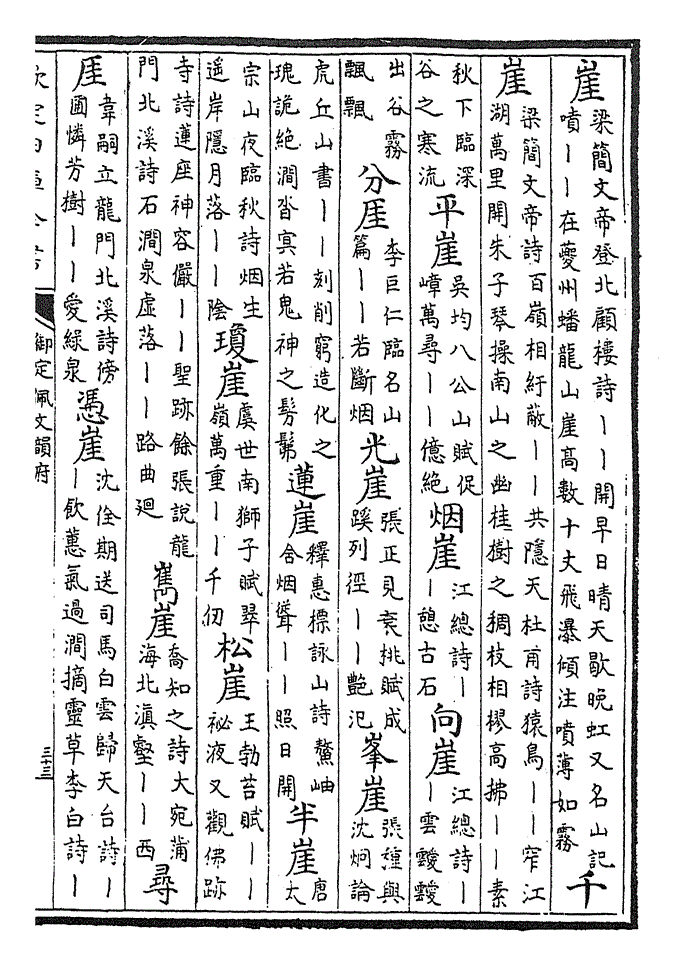 崖梁簡文帝登北顧樓詩｜｜開早日晴天歇晚虹又名山記噴｜｜在夔州蟠龍山崖高數十丈飛瀑傾注噴薄如霧千
崖梁簡文帝詩百嶺相紆蔽｜｜共隱天杜甫詩猿鳥｜｜窄江湖萬里開朱子琴操南山之幽桂樹之稠枝相樛高拂｜｜素
秋下臨深谷之寒流平崖吳均八公山賦促嶂萬尋｜｜億絶烟崖江總詩｜｜憩古石向崖江總詩｜｜雲靉靉
出谷霧飄飄分厓李巨仁臨名山篇｜｜若斷烟光崖張正見衰桃賦成蹊列徑｜｜艷汜峯崖張種與沈炯論
虎丘山書｜｜刻削窮造化之瑰詭絶澗沓冥若鬼神之髣髴蓮崖釋惠標詠山詩鰲岫含烟聳｜｜照日開半崖唐太
宗山夜臨秋詩烟生遥岸隱月落｜｜陰瓊崖虞世南獅子賦翠嶺萬重｜｜千仞松崖王勃苔賦｜｜祕液又觀佛跡
寺詩蓮座神容儼｜｜聖跡餘張説龍門北溪詩石澗泉虛落｜｜路曲廻雋崖喬知之詩大宛蒲海北滇壑｜｜西尋
厓韋嗣立龍門北溪詩傍圃憐芳樹｜｜愛綠泉憑崖沈佺期送司馬白雲歸天台詩｜｜飲蕙氣過澗摘靈草李白詩｜
欽定四庫全書
御定佩文韻府
三十三